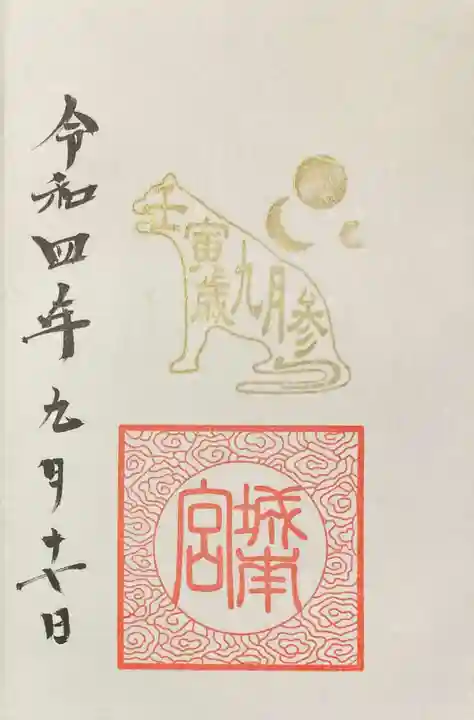 壬寅歳九月参
城南宮
令和四年九月十七日